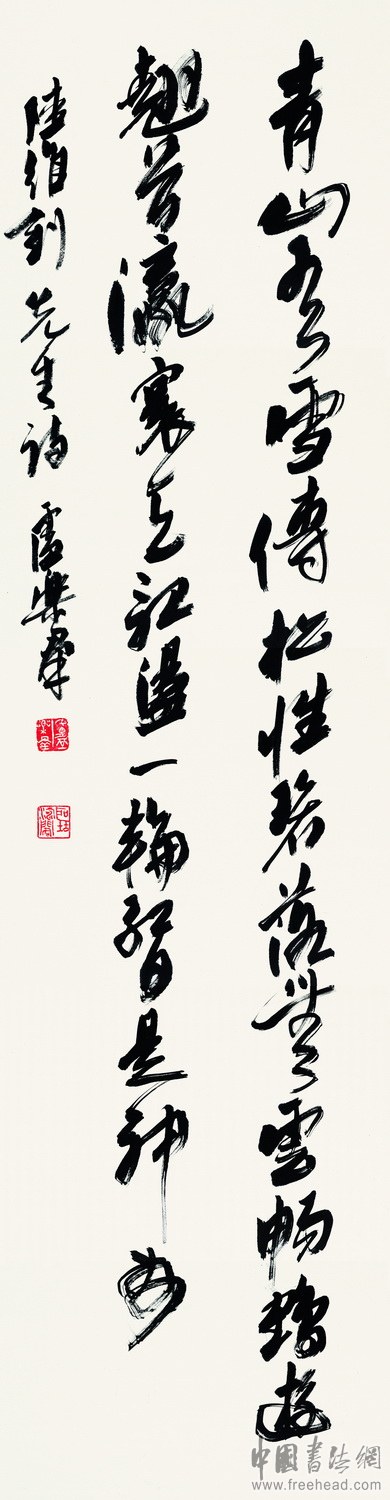 青山有雪傳松性碧落無雲暢鶴遊
翹首瀛寰盪一輪紅日是神州
陸維釗先生詩 盧樂群
中國書法網
www.freehead.com